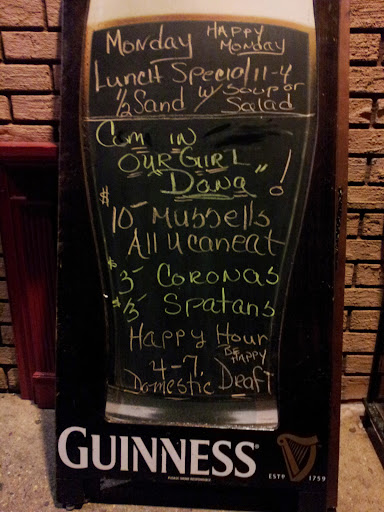 Monday HAPPY MONDAY
Lunch Special 11-4
½ Sand w/ Soup or Salad
Com in
OUR GURL
"Dana"!
$10- Mussells
All U can eat
$3- CORONAS
$3- Spatans
Happy Hour
4-7. BE HAPPY
Domestic Draft
GUINNESS
PLEASE DRINK RESPONSIBLY
ESTD 1759